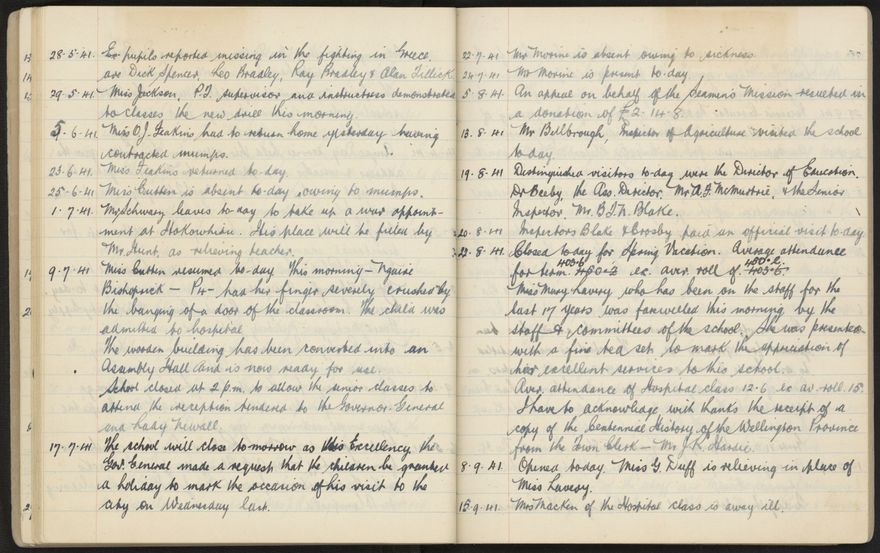 28-5-41. Ex-pupils reported missing in the fighting in Greece,
are Dick Spencer, Leo Bradley, Ray Bradley & Alan Tillick
29.5.41. Miss Jackson, P.T. supervisor and instructress demonstrated
to classes the new drill this morning.
5-6-41. Miss O.J. Jeakins had to return home yesterday having
contracted mumps.
23-6-41. Miss Jeakins returned to-day.
25-6-41 Miss is absent to-day owing to mumps.
1-7-41. Mr Schwarz leaves to-day to take up a war appoint-
ment at Hokowhitu. His place will be filled by
Mr. Hunt, as relieving teacher.
9-7-41 Miss resumed to-day. This morning - Ngaire
- P4 - had his finger severely crushed by
the banging of a door of the classroom. The child was
admitted to hospital
The wooden building has been converted into an
Assembly Hall and is now ready for use.
School closed at 2 p.m. to allow the senior classes to
attend the reception tendered to the Governor-General
and Lady Newall.
17-7-41 The school will close to-morrow as His Excellency the
Gov. General made a request that the children be granted
a holiday to mark the occasion of his visit to the
city on Wednesday last.
22-7-41 Mr Morine is absent owing to sickness
24-7-41. Mr Morine is present to-day.
5-8-41 An appeal on behalf of the Seamen's Mission resulted in
a donation of £2-14-8.
13-8-41 Mr Bellbrough, Inspector of Agriculture visited the school
to-day.
19-8-41 Distinguished visitors to-day were the Director of Education,
Dr Beeby, the Ass. Director, Mr. A.F. McMurtrie, & the Senior
Inspector, Mr. B.J.N. Blake.
20-8-41 Inspectors Blake & Crosby paid an official visit to-day
22-8-41. Closed to-day for Spring Vacation. Average attendance
403.6 450.2
for term. 450.2 ie. aver. roll of. 403.6
Miss Mary Lavery who has been on the staff for the
last 17 years was farewelled this morning by the
staff & committees of the school. She was presented
with a fine tea set to mark the appreciation of
her excellent services to this school.
Aver. attendance of Hospital class 12.6 ie av. roll 15.
I have to acknowledge with thanks the receipt of a
copy of the Centennial History of the Wellington Province
from the Town Clerk - Mr. J.R. Hardie.
8-9-41. Opened to-day. Miss G. Duff is relieving in place of
Miss Lavery.
15-9-41. Mrs Macken of the Hospital class is away ill.